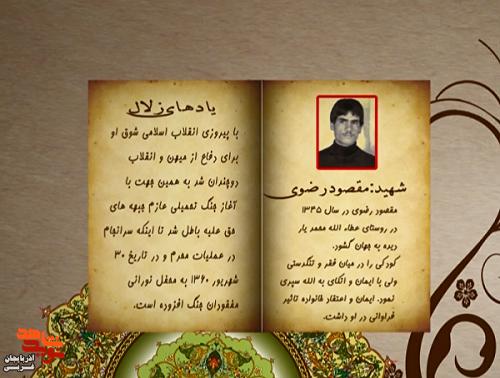 شهید:مقصود رضوی
مقصور رضوی در سال ۱۳۴۵
در روستای عطاء الله محمد یار
دیده به جهان گشود.
کودکی را در میان فقر و تنگدستی
ولی با ایمان و اتکای به الله سپری
نمود. ایمان و اعتقاد خانواده تاثیر
فراوانی در او داشت.
یادهای زلال
با پیروزی انقلاب اسلامی شوق او
برای دفاع از میهن و انقلاب
دوچندان شد به همین جهت با
آغاز جنگ تحمیلی عازم جبهه های
حق علیه باطل شد تا اینکه سرانجام
در عملیات محرم و در تاریخ ۳۰
شهریور ۱۳۶۰ به محفل نورانی
مفقودان جنگ افزوده است.
نوید شاهد
آذربایجان
غربی